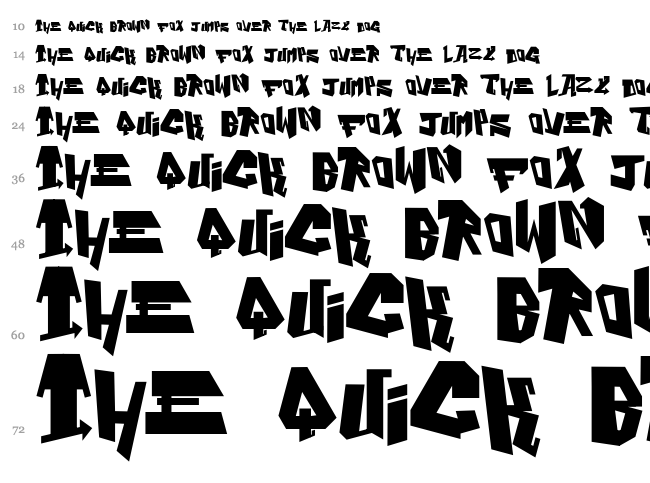 10 THE QUICK BROWN FOX JUMPS OVER THE LAZY DOG
14 THE QUICK BROWN FOX JUMPS OVER THE LAZY DOG
18 THE QUICK BROWN FOX JUMPS OVER THE LAZY DO
24 THE QUICK BROWN FOX JUMPS OVER T
36 THE QUICK BROWN FOX J
48 THE QUICK BROWN
60 THE QUICK BRO
72 THE QUICK B